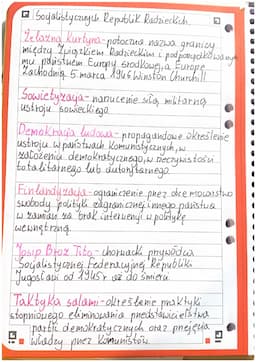 Socjalistycznych Republik Radzieckich.
Żelazna kurtyna - potoczna nazwa granicy
między Związkiem Radzieckim i podporządkowanym
mu państwem Europy środkowej, a Europę
Zachodnią 5 marca 1946 Winston Churchill
Sowietyzacja - narzucenie siłą militarną
ustroju sowieckiego
Demokracja ludowa - propagandowe określenie
ustroju w państwach komunistycznych, w
założeniu demokratycznego, w rzeczywistości
totalitarnego lub autorytarnego
Finlandyzacja - ograniczenie przez obce mocarstwo
swobody polityki zagranicznej innego państwa
w zamian za brak interwencji w politykę
wewnętrzną.
Josip Broz Tito - chorwacki przywódca
Socjalistycznej Federacyjnej Republiki
Jugosławii od 1945r aż do śmierci
Taktyka salami - określenie praktyki
stopniowego eliminowania przedstawicielstwa
partii demokratycznych oraz przejęcia
władzy przez komunistów